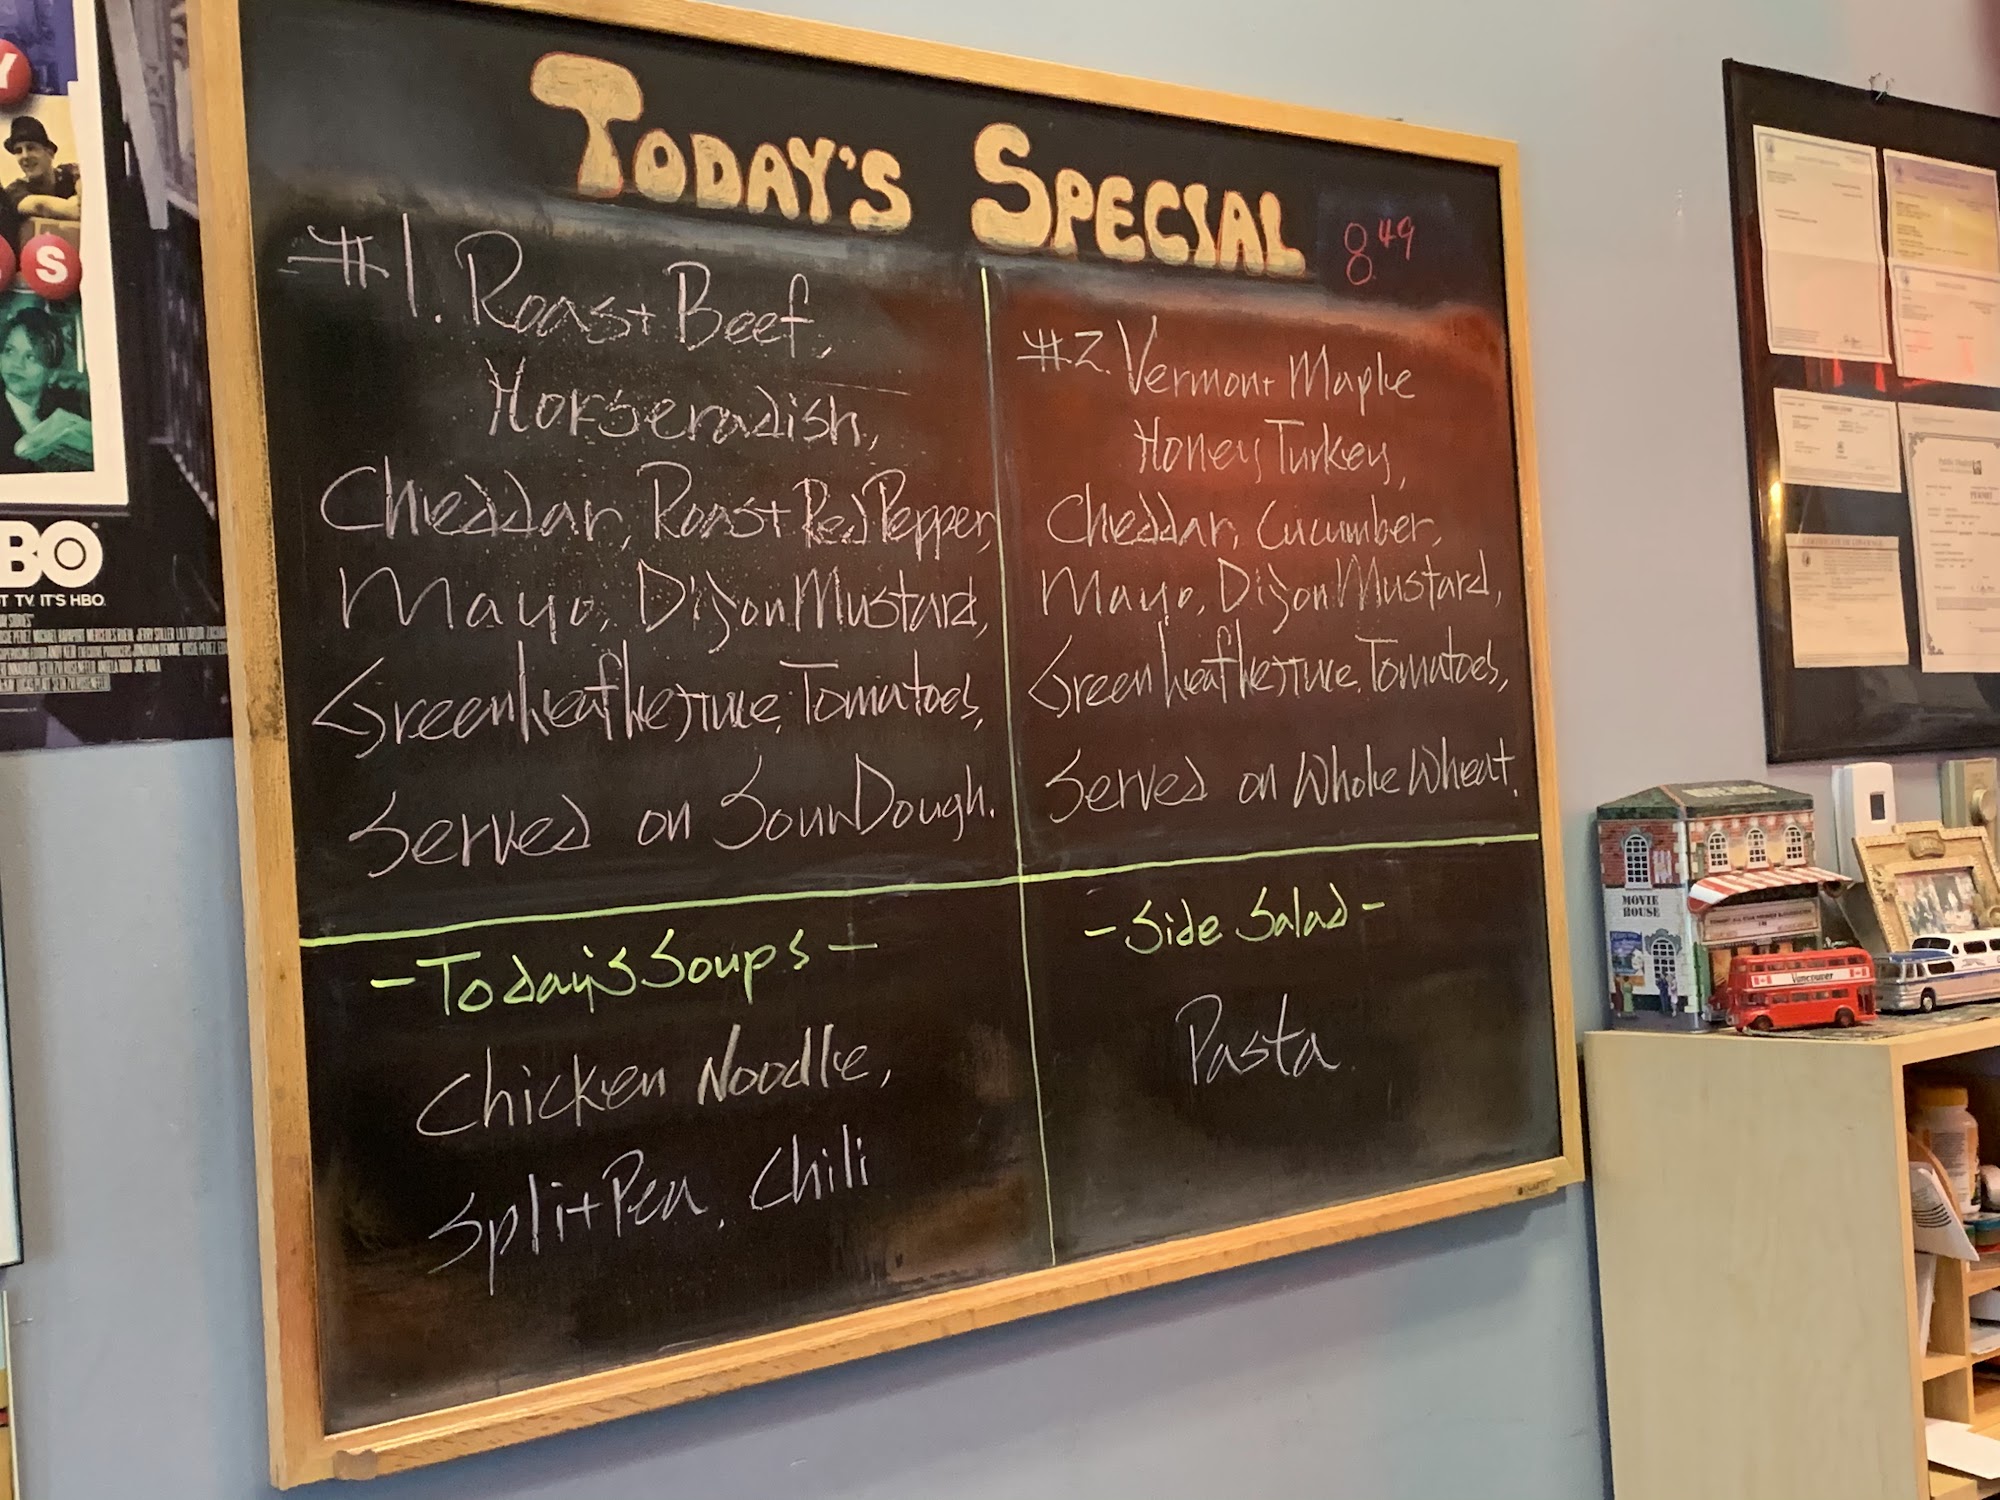 TODAY'S SPECIAL
8.49
#1. Roast Beef,
Horseradish,
Cheddar, Roast Red Pepper,
Mayo, Dijon Mustard,
Green Leaf Lettuce, Tomatoes,
Served on SourDough.
#2. Vermont Maple
Honey Turkey,
Cheddar, Cucumber,
Mayo, Dijon Mustard,
Green Leaf Lettuce, Tomatoes,
Served on Whole Wheat.
- Today's Soups -
Chicken Noodle,
Split Pea, Chili
- Side Salad -
Pasta
Y
S
BO
T TV. IT'S HBO.
MOVIE
HOUSE
Vancouver